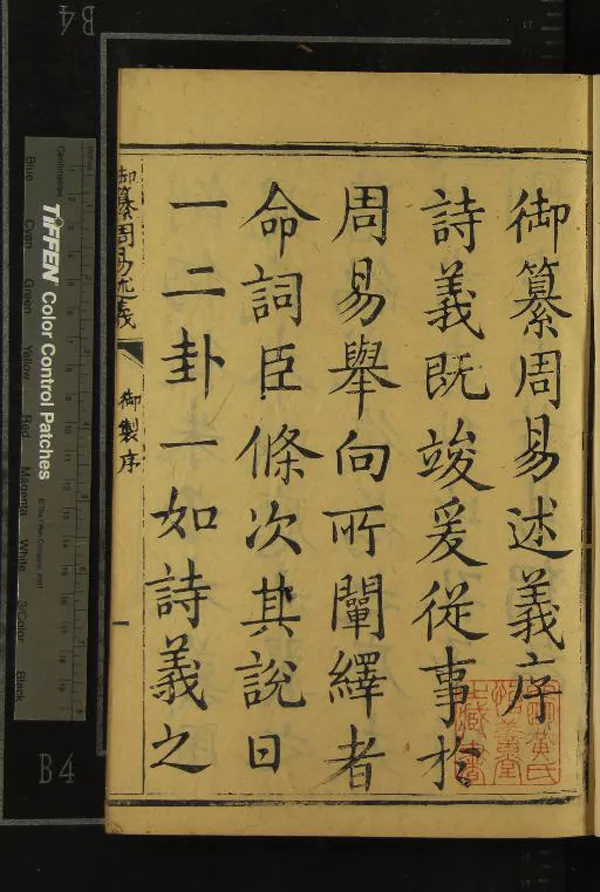 御纂周易述義序
詩義既竣爰從事於
周易舉向所闡繹者
命詞臣條次其說日
一二卦一如詩義之
御纂周易述義
御製序
一
B4
B4
TIFFEN Color Control Patches
Centimetres
Inches
Blue
Cyan
Green
Yellow
Red
Magenta
White
3/Color
Black